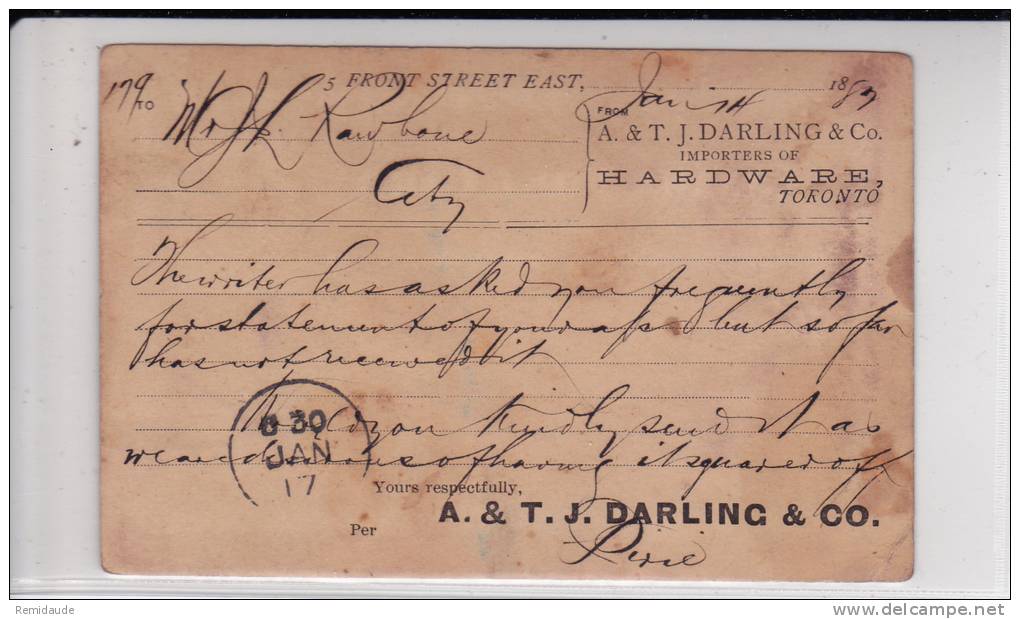 179
5 FRONT STREET EAST, Jan 14 1887
TO Mr J L Rawbone
City
FROM
A. & T. J. DARLING & Co.
IMPORTERS OF
HARDWARE,
TORONTO
The writer has asked you frequently
for statement of your a/c but so far
has not received it
you kindly send it as
we are desirous of having it squared off
8 30
JAN
17
Yours respectfully,
A. & T. J. DARLING & CO.
Per Pirie
Remidaude
delcampe.net